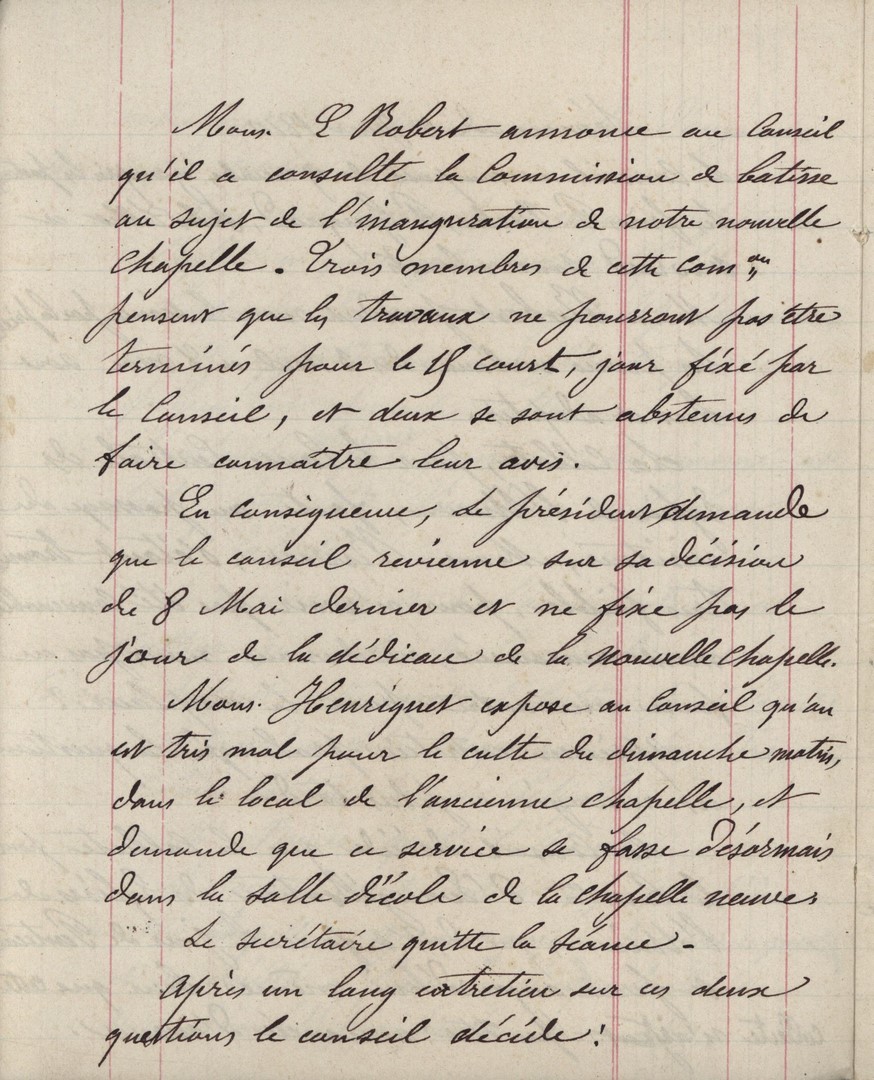 Mons. E Robert annonce au Conseil
qu'il a consulté la Commission de batisse
au sujet de l'inauguration de notre nouvelle
chapelle. Trois membres de cette comon
pensent que les travaux ne pourront pas être
terminés pour le 15 court, jour fixé par
le Conseil, et deux se sont abstenus de
faire connaître leur avis.
En conséquence, le président demande
que le conseil revienne sur sa décision
du 8 Mai dernier et ne fixe pas le
jour de la dédicace de la nouvelle chapelle.
Mons. Henriquet expose au Conseil qu'on
est très mal pour le culte du dimanche matin,
dans le local de l'ancienne chapelle, et
demande que ce service se fasse désormais
dans la salle d'école de la chapelle neuve.
Le secrétaire quitte la séance -
Après un long entretien sur ces deux
questions le conseil décide: